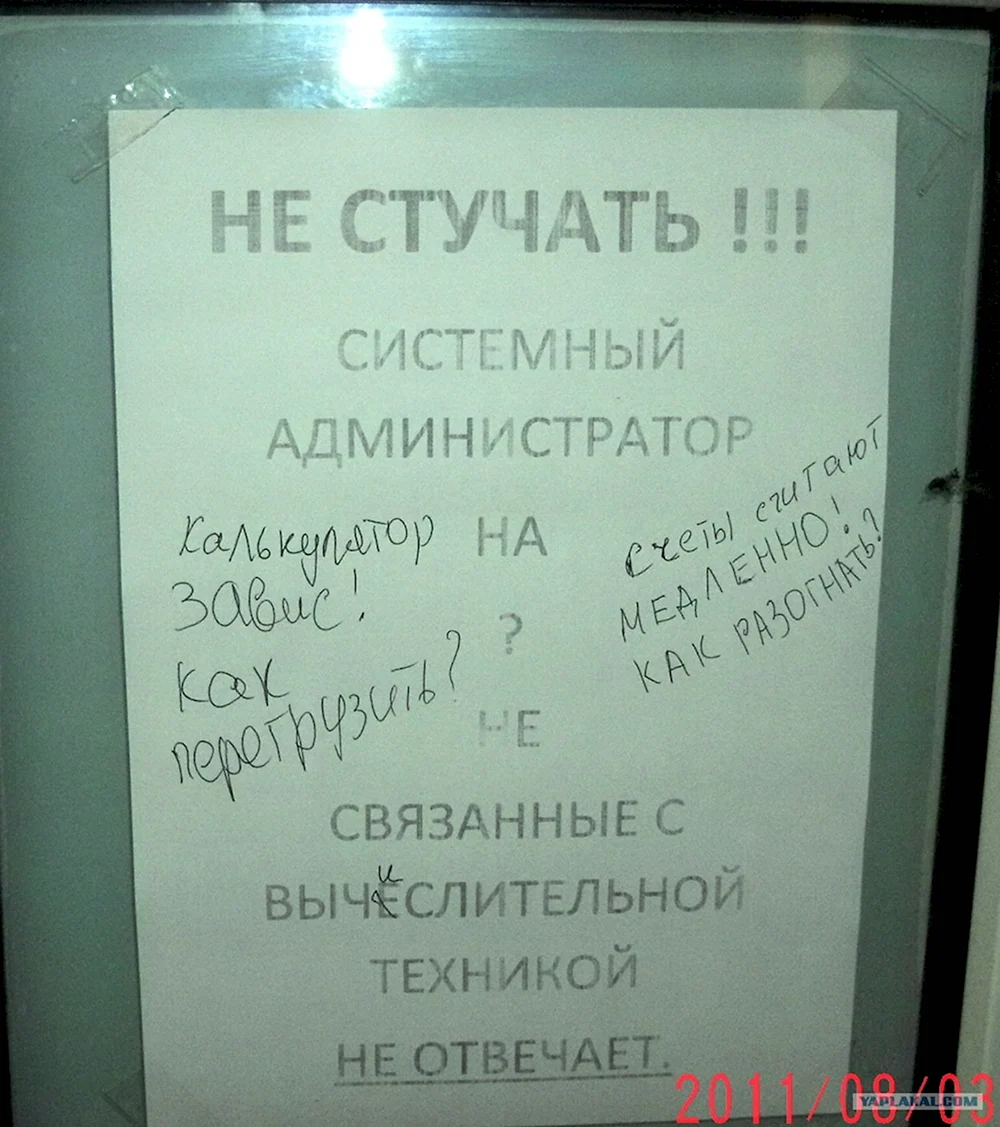 НЕ СТУЧАТЬ !!!
СИСТЕМНЫЙ
АДМИНИСТРАТОР
НА
?
НЕ
СВЯЗАННЫЕ С
ВЫЧЕСЛИТЕЛЬНОЙ
и
ТЕХНИКОЙ
НЕ ОТВЕЧАЕТ.
Калькулятор
завис!
Как
перегрузить?
счеты считают
МЕДЛЕННО!
КАК РАЗОГНАТЬ?
2011/08/03
YAPLAKAL.COM